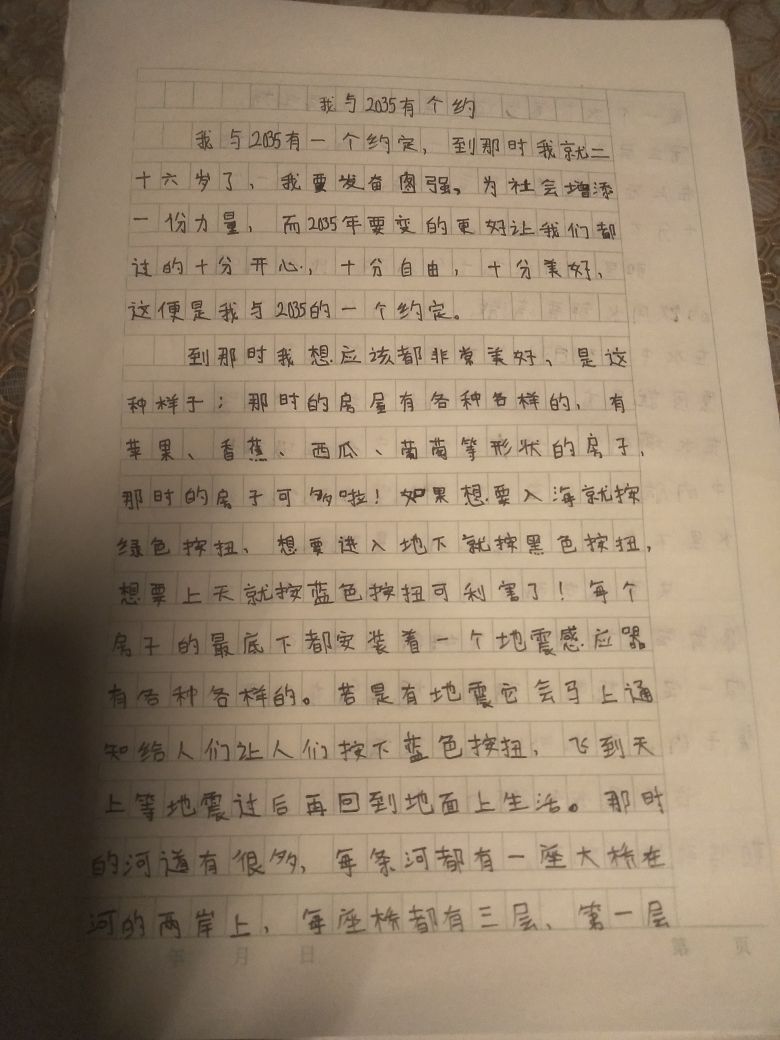 我与2035有个约
我与2035有一个约定，到那时我就二
十六岁了，我要发奋图强，为社会增添
一份力量，而2035年要变的更好让我们都
过的十分开心，十分自由，十分美好，
这便是我与2035的一个约定。
到那时我想应该都非常美好，是这
种样子：那时的房屋有各种各样的，有
苹果、香蕉、西瓜、葡萄等形状的房子，
那时的房子可多啦！如果想要入海就按
绿色按扭，想要进入地下就按黑色按扭，
想要上天就按蓝色按扭可利害了！每个
房子的最底下都安装着一个地震感应器
有各种各样的。若是有地震它会马上通
知给人们让人们按下蓝色按扭，飞到天
上等地震过后再回到地面上生活。那时
的河道有很多，每条河都有一座大桥在
河的两岸上，每座桥都有三层，第一层
年 月 日 第 页